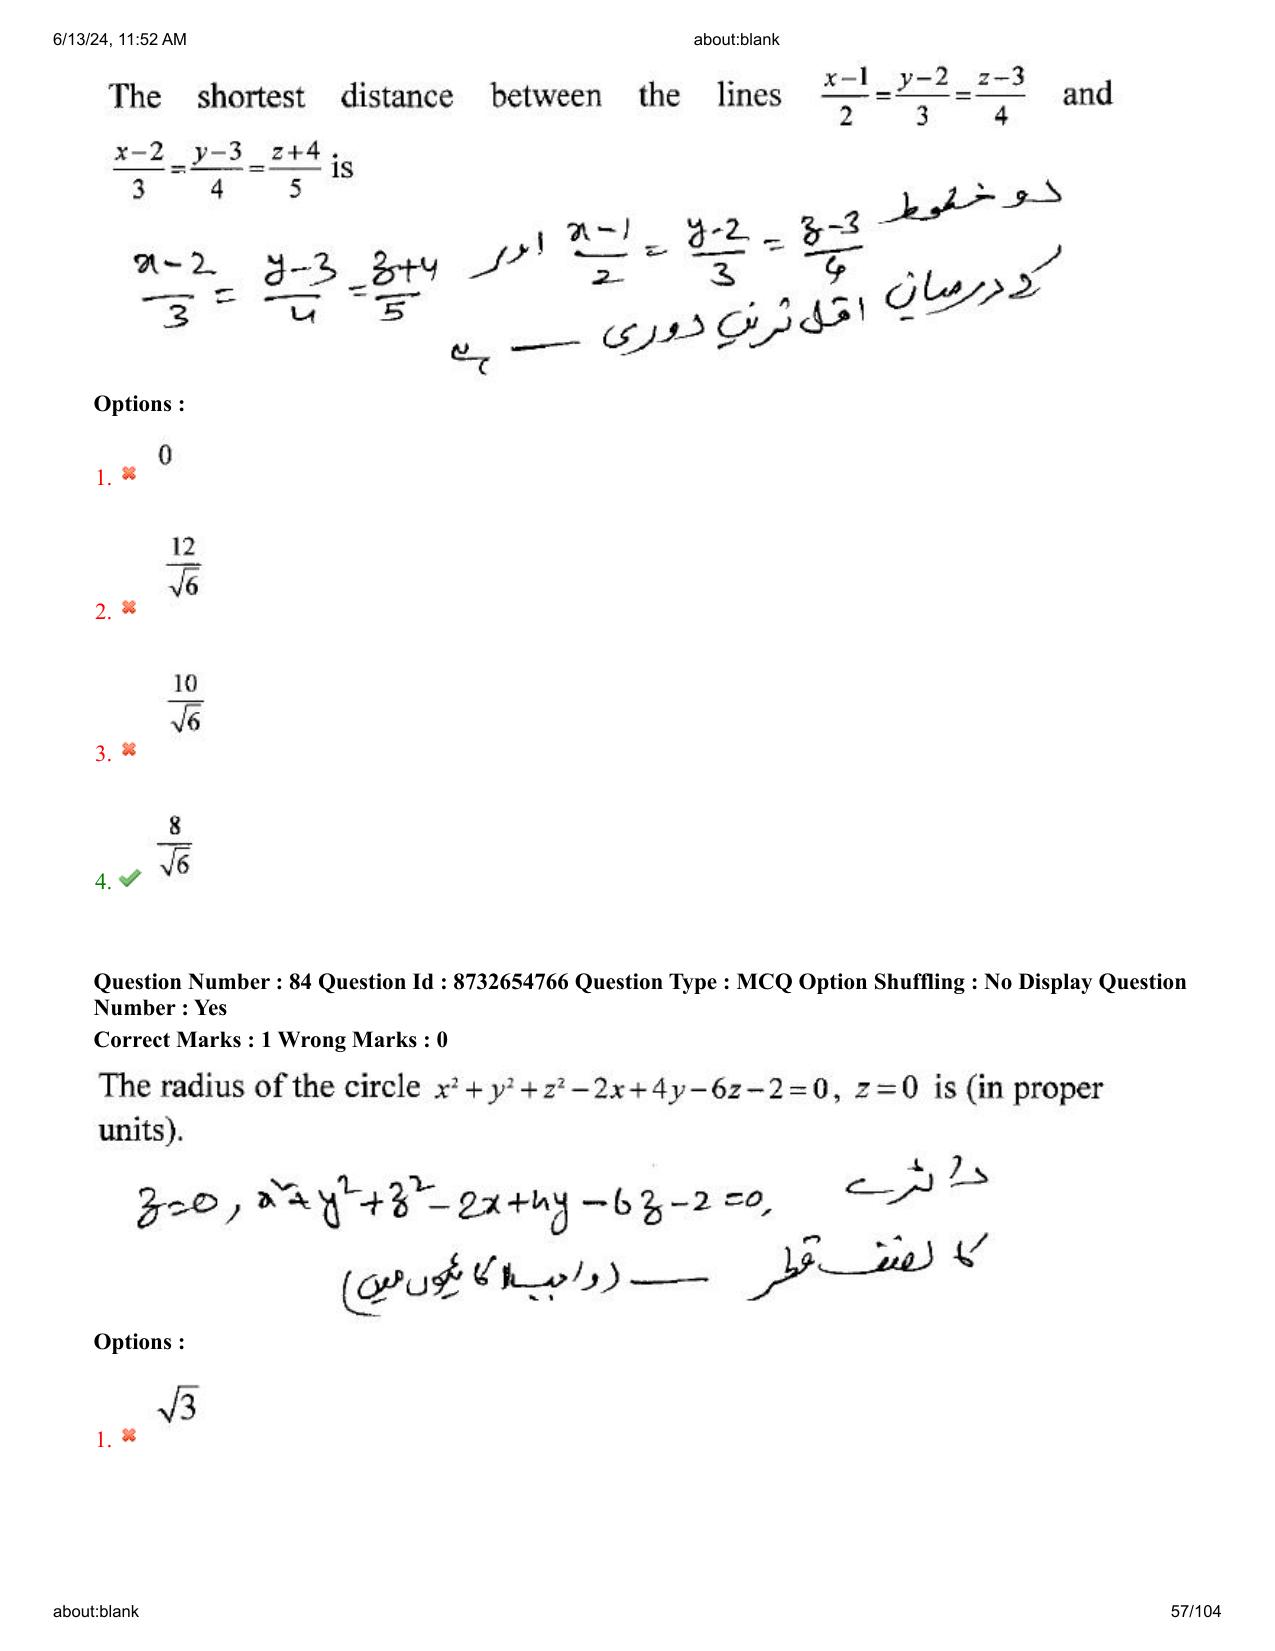 6/13/24, 11:52 AM about:blank
The shortest distance between the lines (x−1)/2 = (y−2)/3 = (z−3)/4 and
(x−2)/3 = (y−3)/4 = (z+4)/5 is
دو خطوط (x−1)/2 = (y−2)/3 = (z−3)/4 اور (x−2)/3 = (y−3)/4 = (z+4)/5
کے درمیان اقل ترین دوری — ہے
Options :
1. 0
2. 12/√6
3. 10/√6
4. 8/√6
Question Number : 84 Question Id : 8732654766 Question Type : MCQ Option Shuffling : No Display Question
Number : Yes
Correct Marks : 1 Wrong Marks : 0
The radius of the circle x² + y² + z² − 2x + 4y − 6z − 2 = 0, z = 0 is (in proper
units).
دائرے z=0, x²+y²+z²−2x+4y−6z−2=0,
کا نصف قطر — (واجب اکائیوں میں)
Options :
1. √3
about:blank 57/104